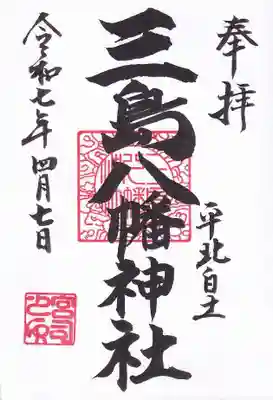 奉拝
平北白土
三島八幡神社
令和七年四月七日